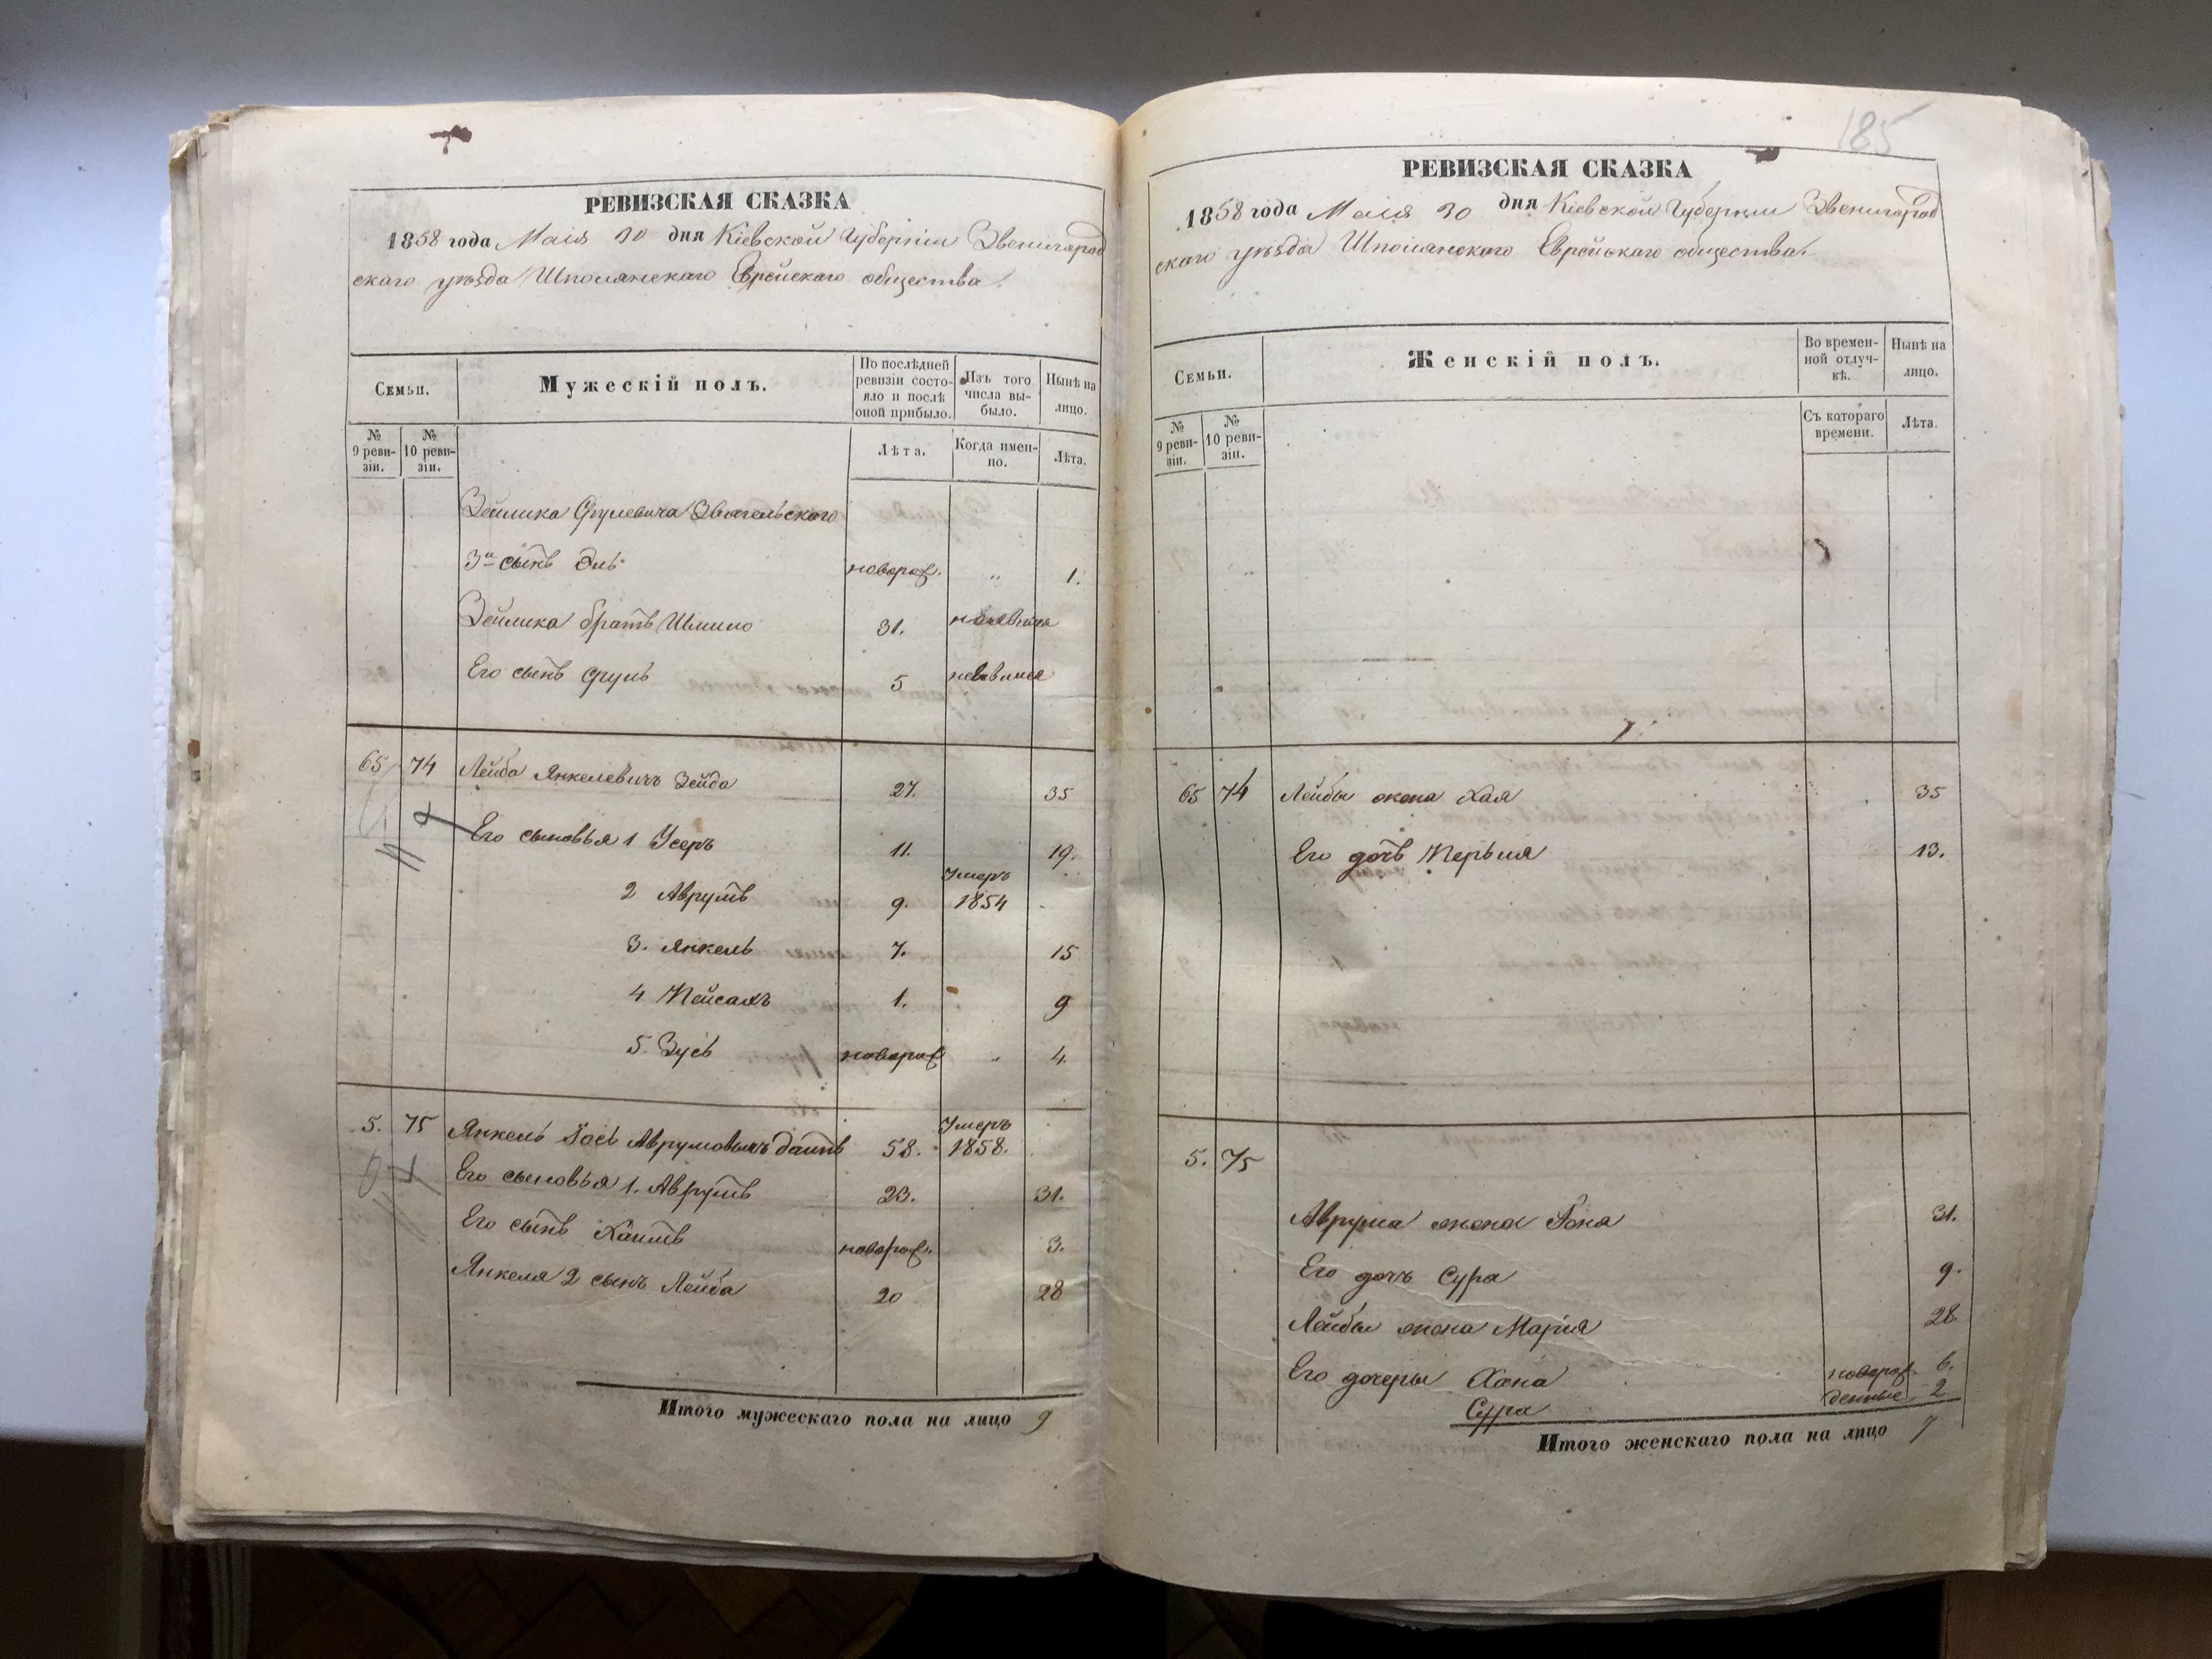 РЕВИЗСКАЯ СКАЗКА
1858 года Маія 30 дня Кіевской Губерніи Звенигород
скаго уѣзда Шполянскаго Еврейскаго общества.
Семьи.
Мужескій полъ.
По послѣдней
ревизіи состо-
яло и послѣ
оной прибыло.
Изъ того
числа вы-
было.
Нынѣ на
лицо.
№
9 реви-
зіи.
№
10 реви-
зіи.
Лѣта.
Когда имен-
но.
Лѣта.
Зейлика Срулевича Звягельскаго
3й сынъ новорож. " 1.
Зейлика братъ Шмило 31. неявился
Его сынъ Сруль 5 неявился
65 74 Лейба Янкелевичъ Зейда 27. 35
Его сыновья 1 Усеръ 11. 19.
2 Аврумъ 9. Умеръ 1854
3. Янкель 7. 15
4 Пейсахъ 1. 9
5. Зусь новорож 4.
5. 75 Янкель Іось Аврумовичъ 58. Умеръ 1858.
Его сыновья 1. Аврумъ 23. 31.
Его сынъ Хаимъ новорож. 3.
Янкеля 2 сынъ Лейба 20 28
Итого мужескаго пола на лицо 9
185
РЕВИЗСКАЯ СКАЗКА
1858 года Маія 30 дня Кіевской Губерніи Звенигород
скаго уѣзда Шполянскаго Еврейскаго общества.
Семьи.
Женскій полъ.
Во времен-
ной отлуч-
кѣ.
Нынѣ на
лицо.
№
9 реви-
зіи.
№
10 реви-
зіи.
Съ котораго
времени.
Лѣта.
65 74 Лейбы жена Хая 35
Его дочь Перьля 13.
5. 75
Аврума жена 31.
Его дочь Сура 9.
Лейбы жена Марія 28
Его дочеры Хана новорож 6.
Сура денные 2
Итого женскаго пола на лицо 7